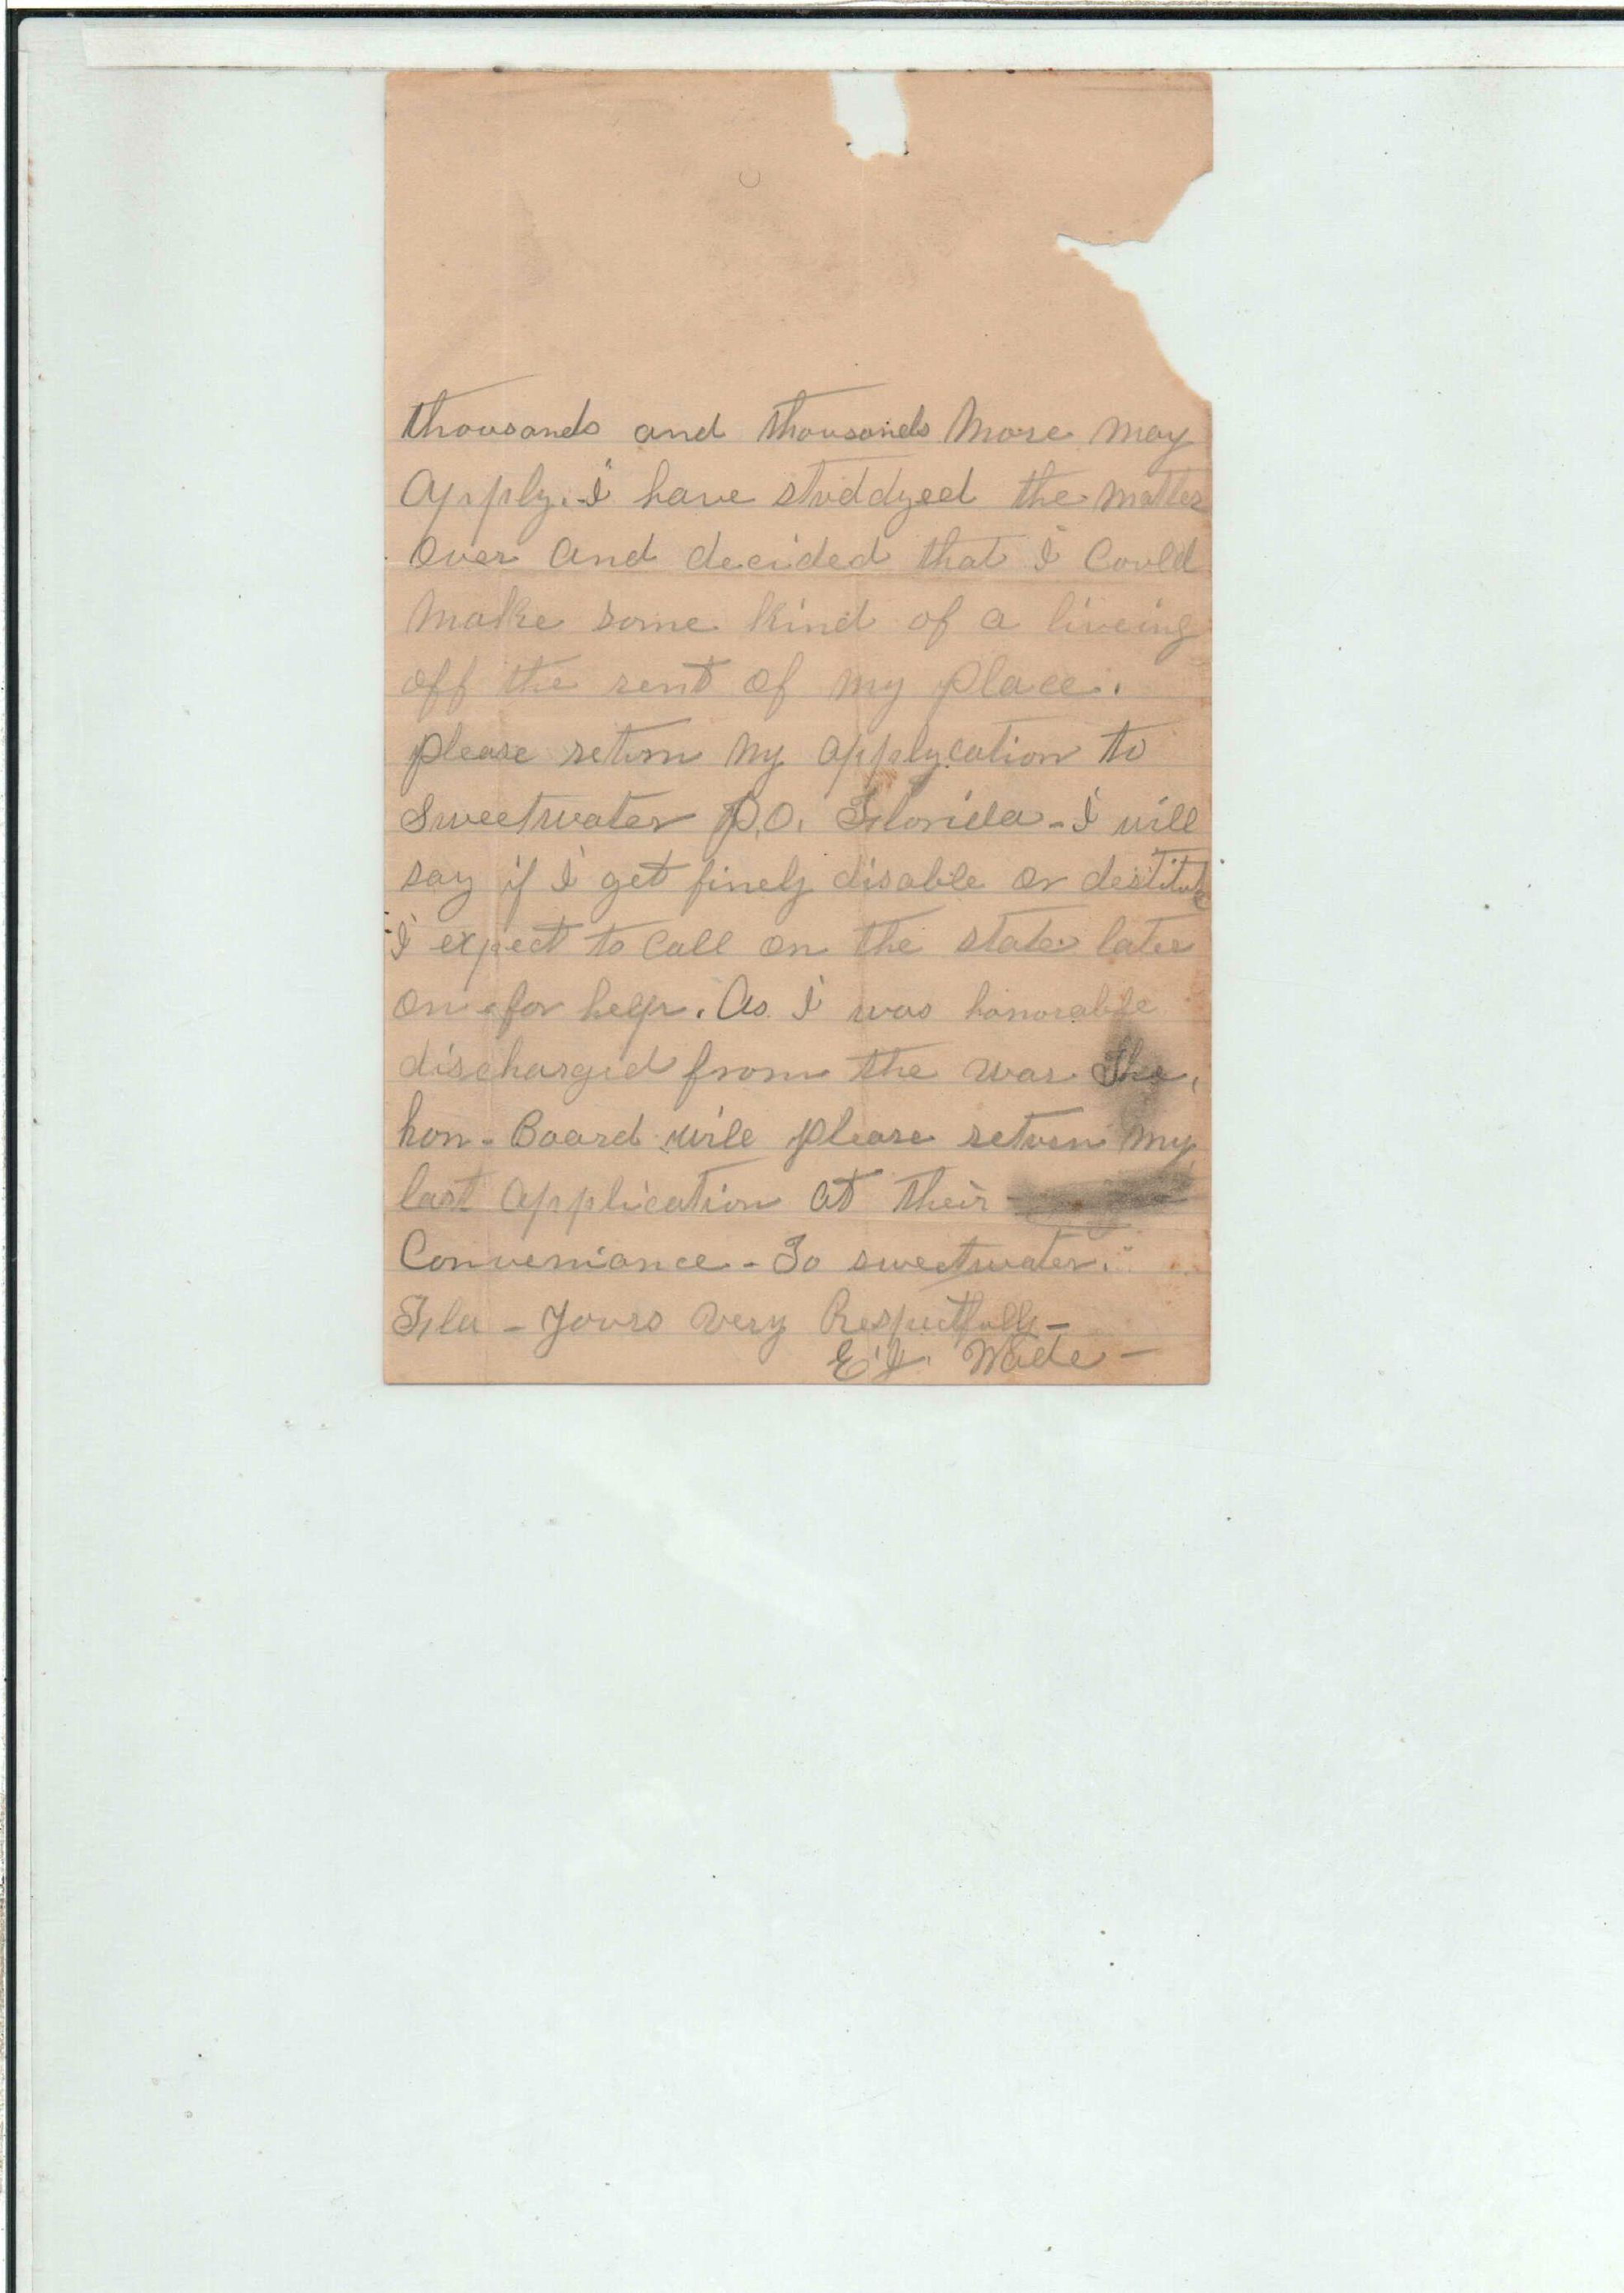 thousands and thousands More may
Apply. I have studdyed the matter
Over and decided that I Could
Make some kind of a liveing
off the rent of my place.
please return My applycation to
Sweetwater P.O. Florida - I will
say if I get finely disable or destitute
I expect to Call on the state later
on for help. As I was honorable
discharged from the war the,
hon - Board will please return my
last Application at their
Conveniance - To sweetwater.
Fla - Yours Very Respectfully -
E. J. Wade -